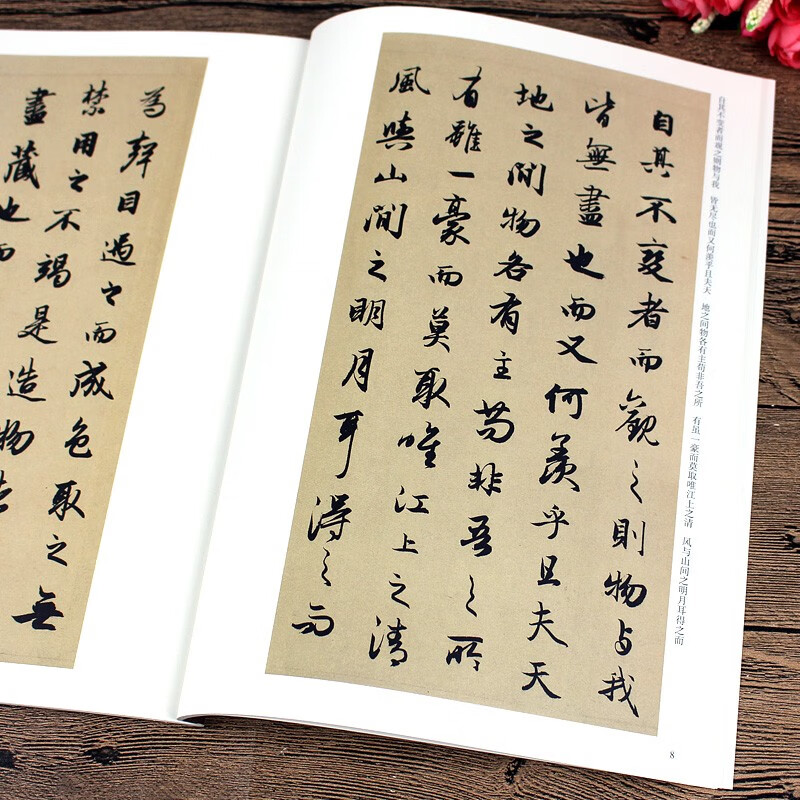 自其不变者而观之则物与我 皆无尽也而又何羡乎且夫天 地之间物各有主苟非吾之所 有虽一豪而莫取唯江上之清 风与山间之明月耳得之而
自其不變者而觀之則物与我
皆無盡也而又何羨乎且夫天
地之間物各有主苟非吾之所
有雖一豪而莫取唯江上之清
風與山間之明月耳得之而
8
為聲目遇之而成色取之無
禁用之不竭是造物者
盡藏也而